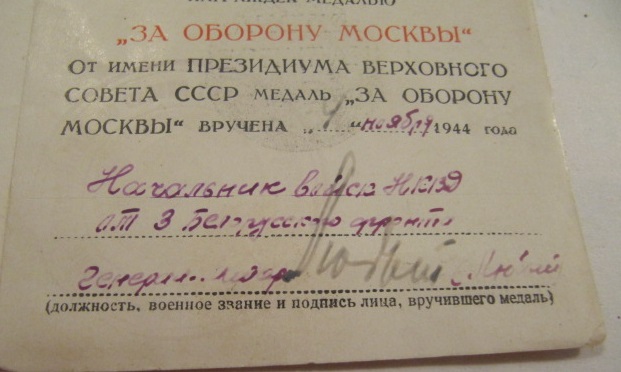 НАГРАЖДЕН МЕДАЛЬЮ
„ЗА ОБОРОНУ МОСКВЫ“
ОТ ИМЕНИ ПРЕЗИДИУМА ВЕРХОВНОГО
СОВЕТА СССР МЕДАЛЬ „ЗА ОБОРОНУ
МОСКВЫ“ ВРУЧЕНА „4“ ноября 1944 года
Начальник войск НКВД
от 3 Белорусского фронта
Генерал-майор Любый (Любый
(должность, военное звание и подпись лица, вручившего медаль)